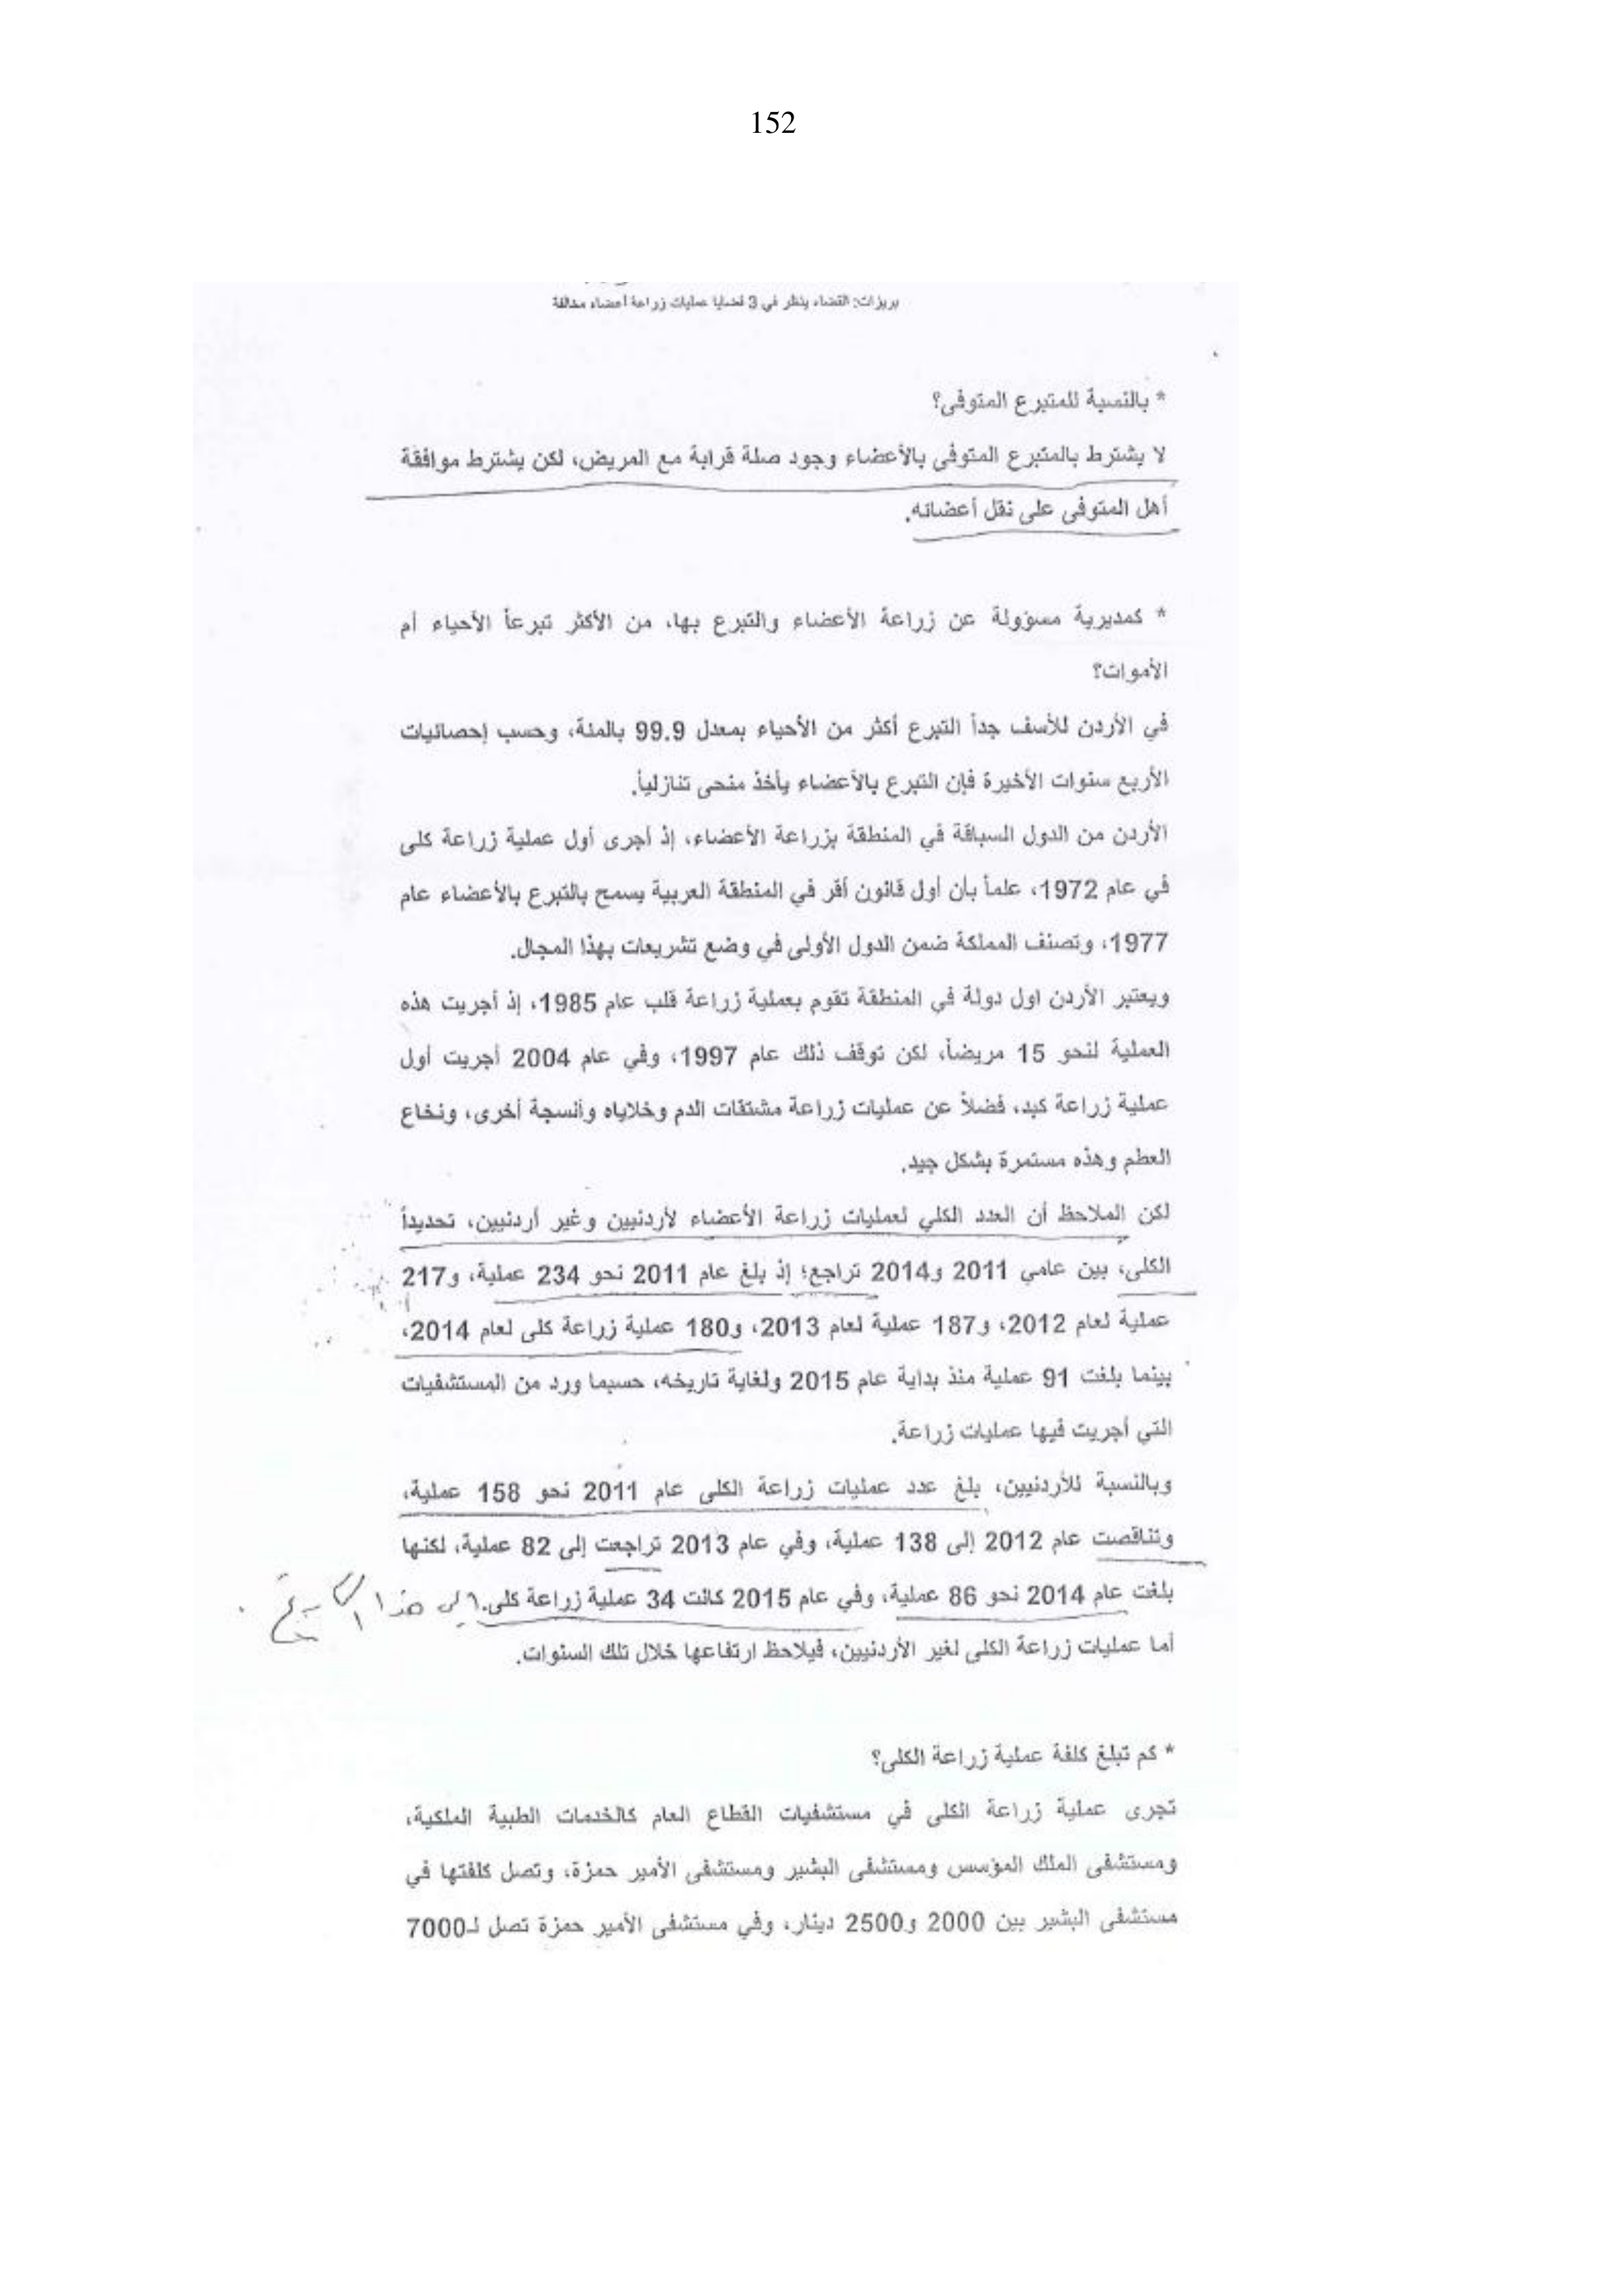 152
بريزات: القضاء ينظر في 3 قضايا عمليات زراعة أعضاء مخالفة
* بالنسبة للمتبرع المتوفى؟
لا يشترط بالمتبرع المتوفى بالأعضاء وجود صلة قرابة مع المريض، لكن يشترط موافقة
أهل المتوفى على نقل أعضائه.
* كمديرية مسؤولة عن زراعة الأعضاء والتبرع بها، من الأكثر تبرعاً الأحياء أم
الأموات؟
في الأردن للأسف جداً التبرع أكثر من الأحياء بمعدل 99.9 بالمئة، وحسب إحصائيات
الأربع سنوات الأخيرة فإن التبرع بالأعضاء يأخذ منحى تنازلياً.
الأردن من الدول السباقة في المنطقة بزراعة الأعضاء، إذ أجرى أول عملية زراعة كلى
في عام 1972، علماً بأن أول قانون أقر في المنطقة العربية يسمح بالتبرع بالأعضاء عام
1977، وتصنف المملكة ضمن الدول الأولى في وضع تشريعات بهذا المجال.
ويعتبر الأردن اول دولة في المنطقة تقوم بعملية زراعة قلب عام 1985، إذ أجريت هذه
العملية لنحو 15 مريضاً، لكن توقف ذلك عام 1997، وفي عام 2004 أجريت أول
عملية زراعة كبد، فضلاً عن عمليات زراعة مشتقات الدم وخلاياه وأنسجة أخرى، ونخاع
العظم وهذه مستمرة بشكل جيد.
لكن الملاحظ أن العدد الكلي لعمليات زراعة الأعضاء لأردنيين وغير أردنيين، تحديداً
الكلى، بين عامي 2011 و2014 تراجع؛ إذ بلغ عام 2011 نحو 234 عملية، و217
عملية لعام 2012، و187 عملية لعام 2013، و180 عملية زراعة كلى لعام 2014،
بينما بلغت 91 عملية منذ بداية عام 2015 ولغاية تاريخه، حسبما ورد من المستشفيات
التي أجريت فيها عمليات زراعة.
وبالنسبة للأردنيين، بلغ عدد عمليات زراعة الكلى عام 2011 نحو 158 عملية،
وتناقصت عام 2012 إلى 138 عملية، وفي عام 2013 تراجعت إلى 82 عملية، لكنها
بلغت عام 2014 نحو 86 عملية، وفي عام 2015 كانت 34 عملية زراعة كلى. إلى هذا التاريخ
أما عمليات زراعة الكلى لغير الأردنيين، فيلاحظ ارتفاعها خلال تلك السنوات.
* كم تبلغ كلفة عملية زراعة الكلى؟
تجرى عملية زراعة الكلى في مستشفيات القطاع العام كالخدمات الطبية الملكية،
ومستشفى الملك المؤسس ومستشفى البشير ومستشفى الأمير حمزة، وتصل كلفتها في
مستشفى البشير بين 2000 و2500 دينار، وفي مستشفى الأمير حمزة تصل لـ7000